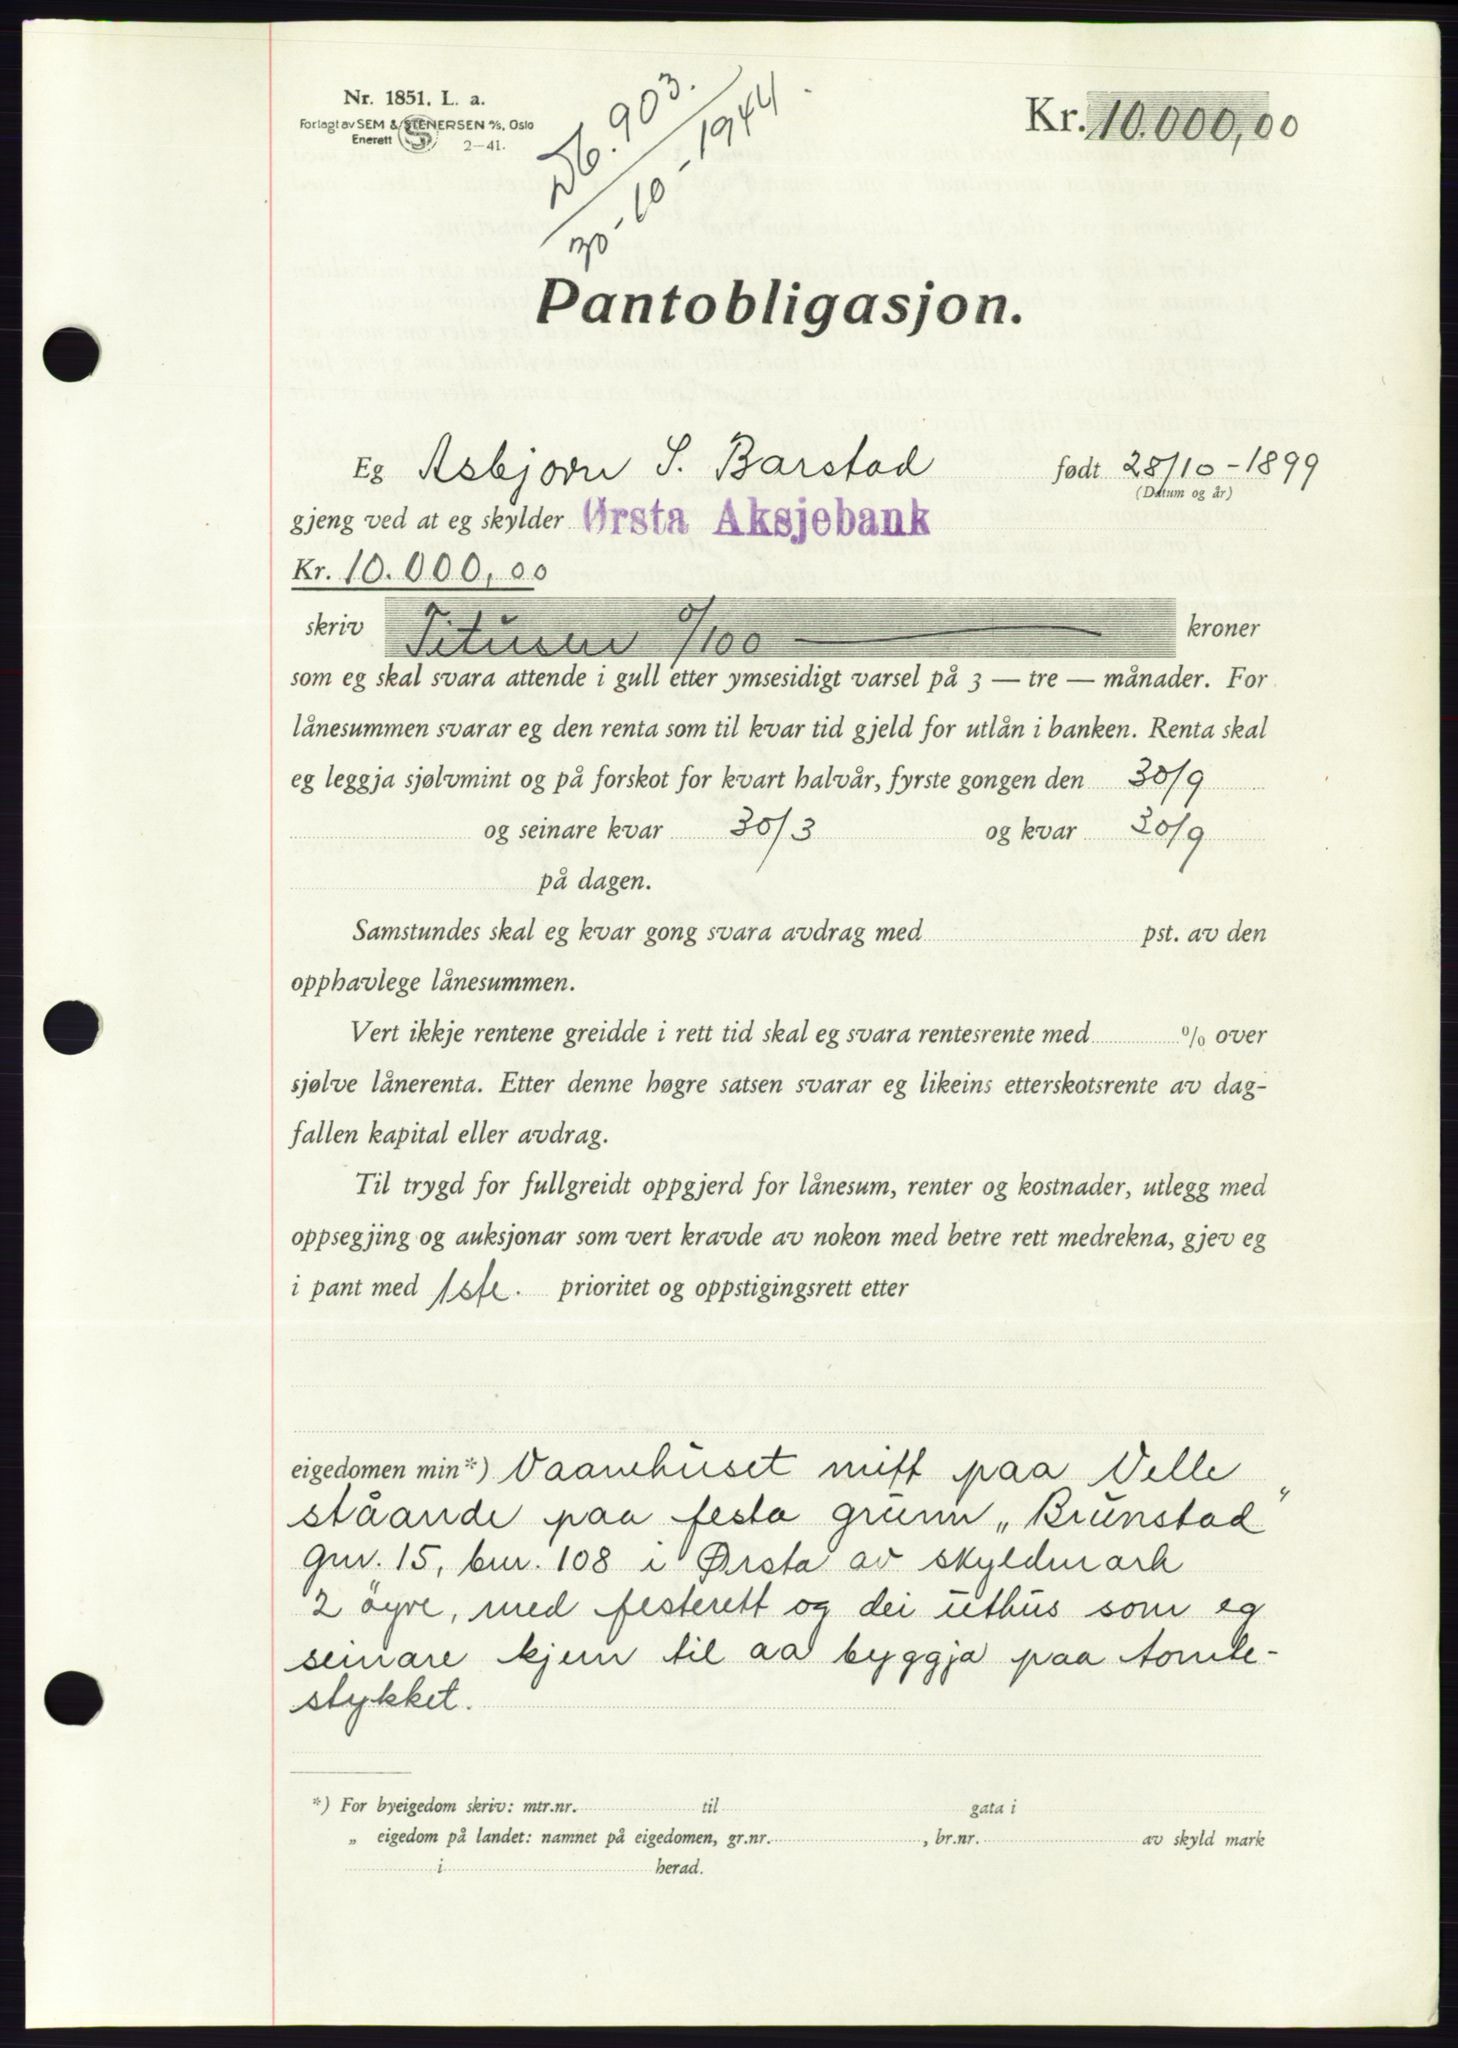 Nr. 1851. L. a.
Forlagt av SEM & STENERSEN A/S, Oslo
Enerett
2-41.
Db. 903.
30-10-1944.
Kr. 10.000,00
Pantobligasjon.
Eg Asbjørn S. Barstad født 28/10-1899
(Datum og år)
gjeng ved at eg skylder Ørsta Aksjebank
Kr. 10.000,00
skriv Titusen 0/100 — kroner
som eg skal svara attende i gull etter ymsesidigt varsel på 3 — tre — månader. For
lånesummen svarar eg den renta som til kvar tid gjeld for utlån i banken. Renta skal
eg leggja sjølvmint og på forskot for kvart halvår, fyrste gongen den 30/9
og seinare kvar 30/3 og kvar 30/9
på dagen.
Samstundes skal eg kvar gong svara avdrag med pst. av den
opphavlege lånesummen.
Vert ikkje rentene greidde i rett tid skal eg svara rentesrente med % over
sjølve lånerenta. Etter denne høgre satsen svarar eg likeins etterskotsrente av dag-
fallen kapital eller avdrag.
Til trygd for fullgreidt oppgjerd for lånesum, renter og kostnader, utlegg med
oppsegjing og auksjonar som vert kravde av nokon med betre rett medrekna, gjev eg
i pant med 1ste. prioritet og oppstigingsrett etter
eigedomen min*) Vaanehuset mitt paa Velle
ståande paa festa grunn „Brunstad"
gnr. 15, bnr. 108 i Ørsta av skyldmark
2 öyre, med festerett og dei uthus som eg
seinare kjem til aa byggja paa tomte-
stykket.
*) For byeigedom skriv: mtr.nr. til gata i
„ eigedom på landet: namnet på eigedomen, gr.nr. , br.nr. av skyld mark
i herad.